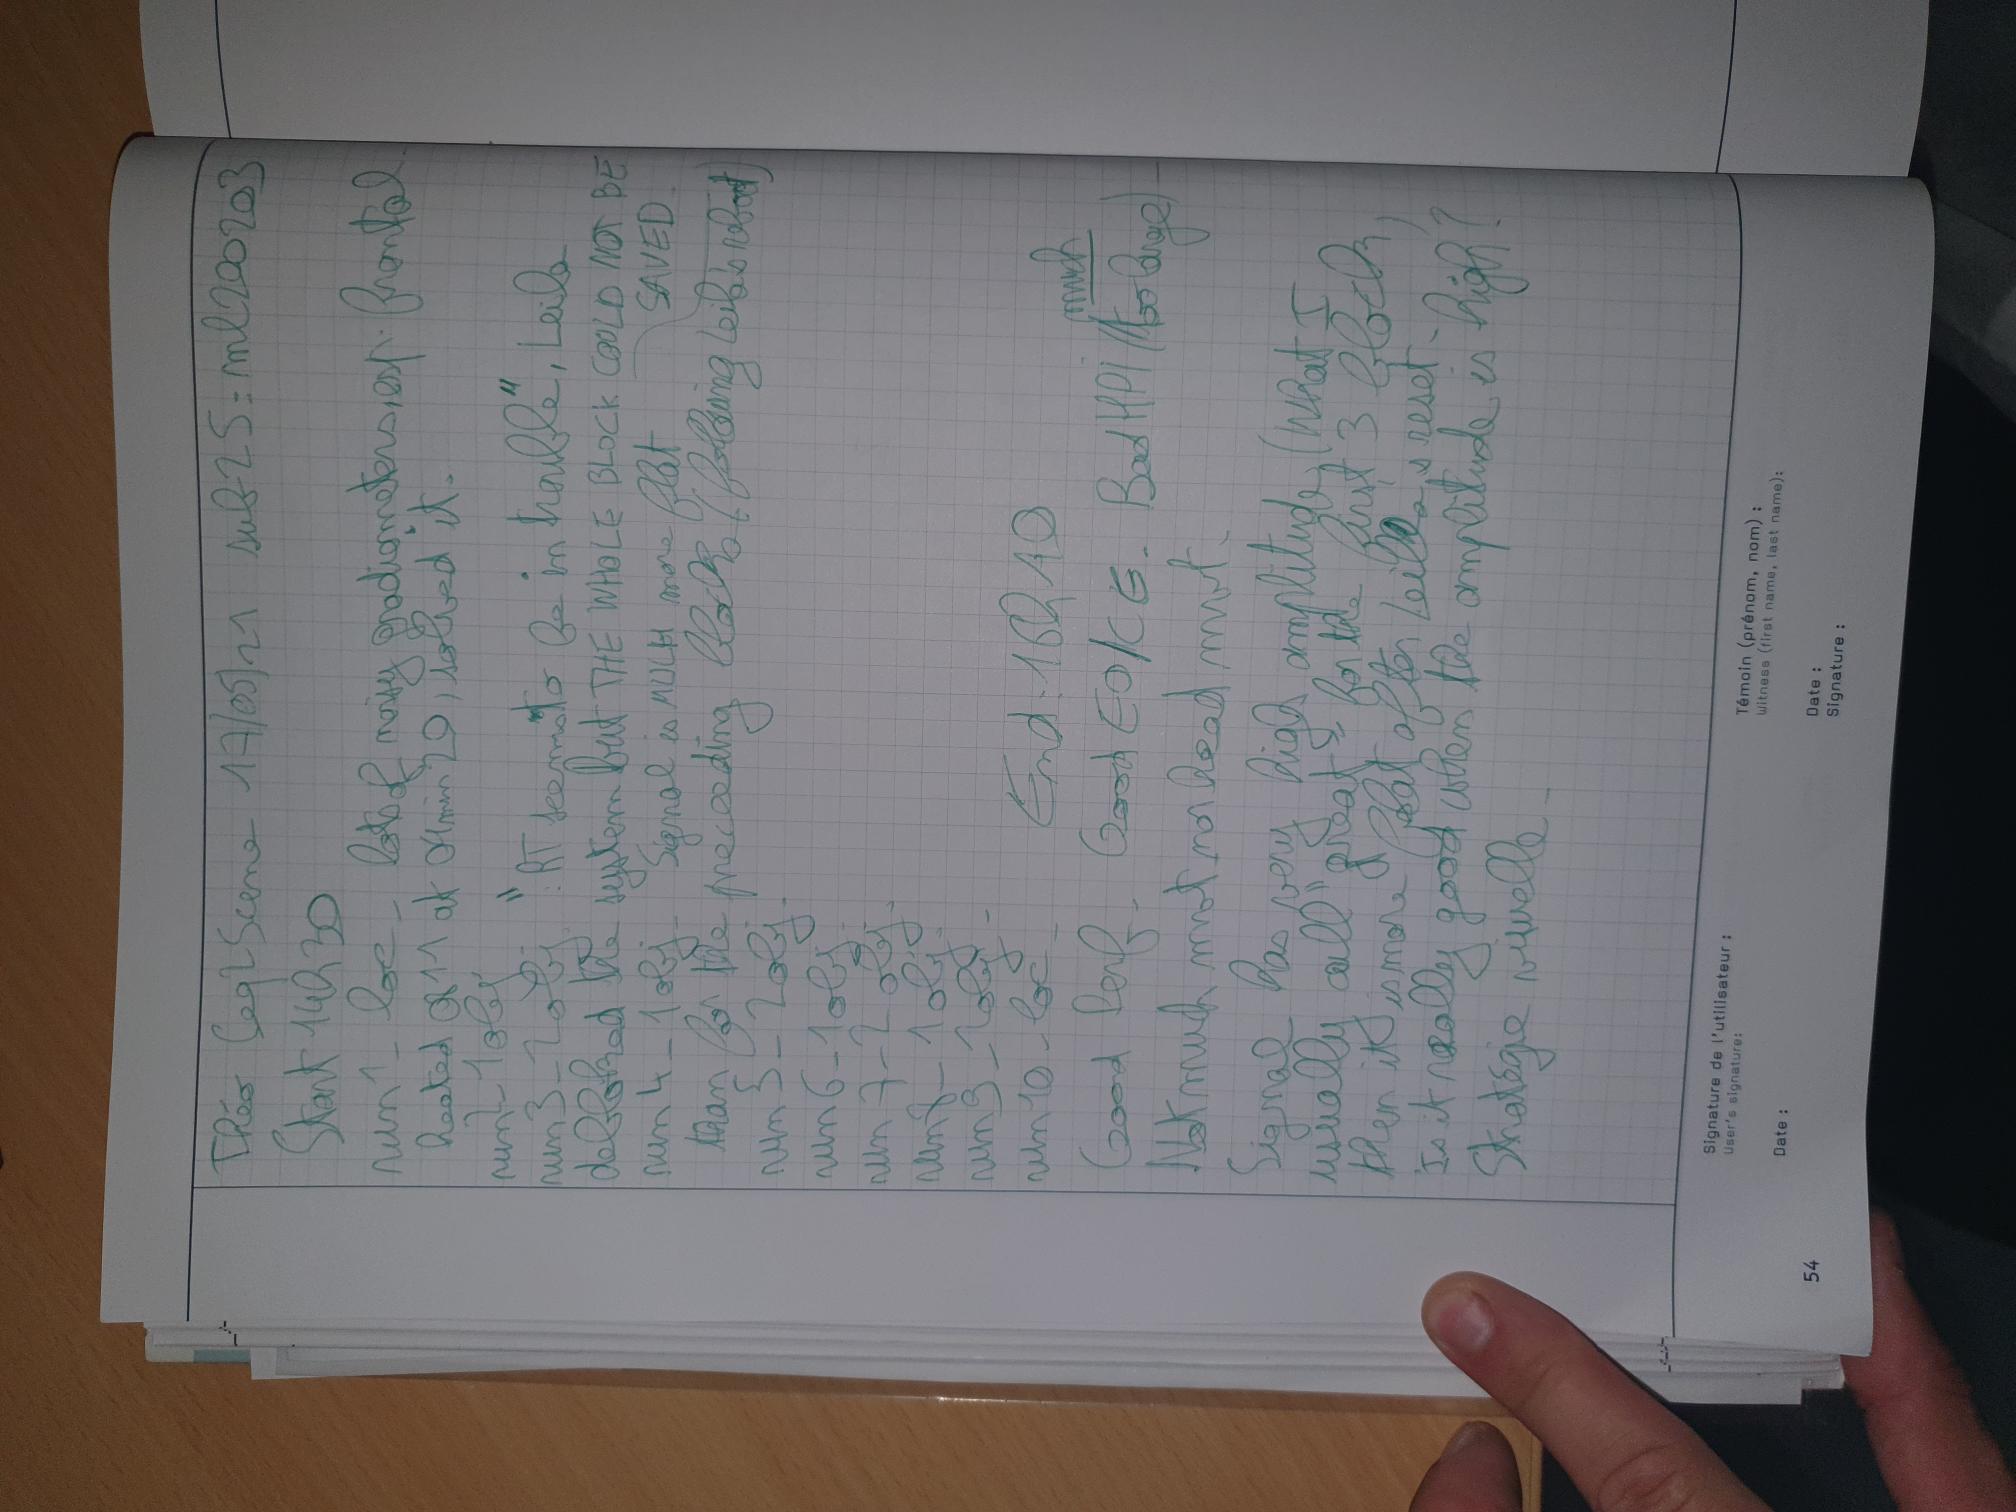 Théo Seq2Scene 17/05/21 sub25 = ml200203
Start 14h30
run1 - loc - lots of noisy gradiometers, esp. frontal.
heated all at 4min20, solved it.
run2 - 1obj
run3 - 2obj. ": RT seems to be in trouble", Leila
deblocked the system but THE WHOLE BLOCK COULD NOT BE
SAVED.
run4 - 1obj - Signal is MUCH more flat
than for the preceeding blocks (following Leila's reboot)
run5 - 2obj.
run6 - 1obj.
run7 - 2obj.
run8 - 1obj.
run9 - 2obj -
run10 - loc - End: 16h10
much
Good Perf. Good EO/CG. Bad HPI (too large) -
Not much mvt nor head mvt.
Signal has very high amplitude, (What I
usually call "great" for the first 3 blocks,
then it is more flat after Leila's reset.
Is it really good when the amplitude is high?
Stratégie visuelle -
Signature de l'utilisateur :
User's signature:
Témoin (prénom, nom) :
Witness (first name, last name):
Date :
Date :
Signature :
54